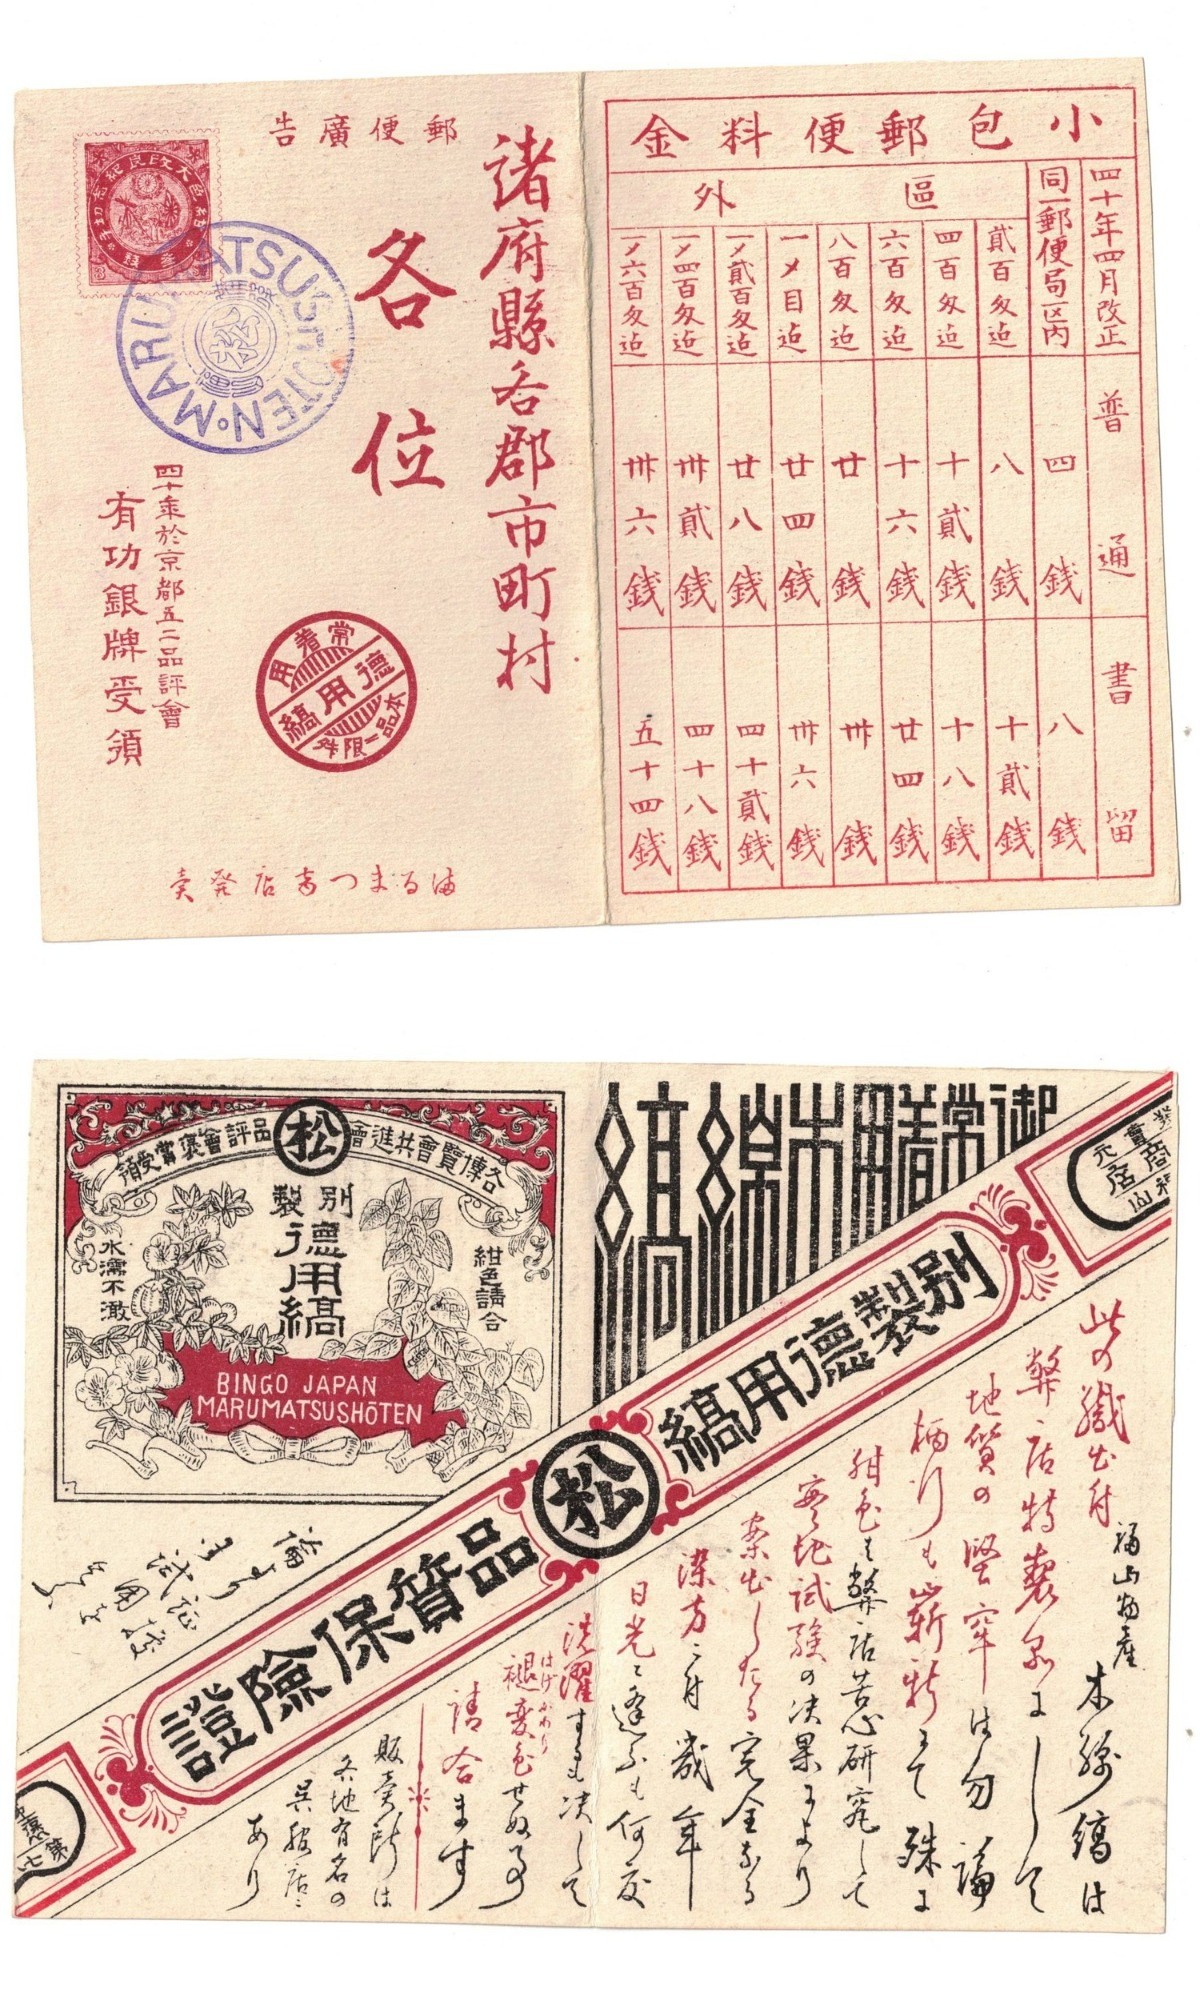 郵便廣告
諸府縣各郡市町村
各位
MARUMATSUSHOTEN
松
常着用
德用縞
本品ニ限ル
四十年於京都五二品評會
有功銀牌受領
まるまつ商店発売
小包郵便料金
四十年四月改正
普通
書留
同一郵便局区内
四銭
八銭
區外
貳百匁迠
八銭
十貳銭
四百匁迠
十貳銭
十八銭
六百匁迠
十六銭
廿四銭
八百匁迠
廿銭
卅銭
一メ目迠
廿四銭
卅六銭
一メ貳百匁迠
廿八銭
四十貳銭
一メ四百匁迠
卅貳銭
四十八銭
一メ六百匁迠
卅六銭
五十四銭
各博覽會共進會品評會褒賞受領
松
別製
德用縞
紺色請合
水濡不澈
BINGO JAPAN
MARUMATSUSHŌTEN
御常着用木綿縞
別製德用縞
松
品質保險證
福山物産
木綿縞は
此の織出付
弊店特製品にして
地質の堅牢は勿論
柄行も嶄新にて殊に
紺色は弊店苦心研究して
実地試験の决果により
案出したる完全なる
染方ニ付幾年
日光ニ逢ふも何度
洗濯するも决して
褪変色せぬ事
はげかわり
請合ます
販売所は
各地有名の
呉服店ニ
あり